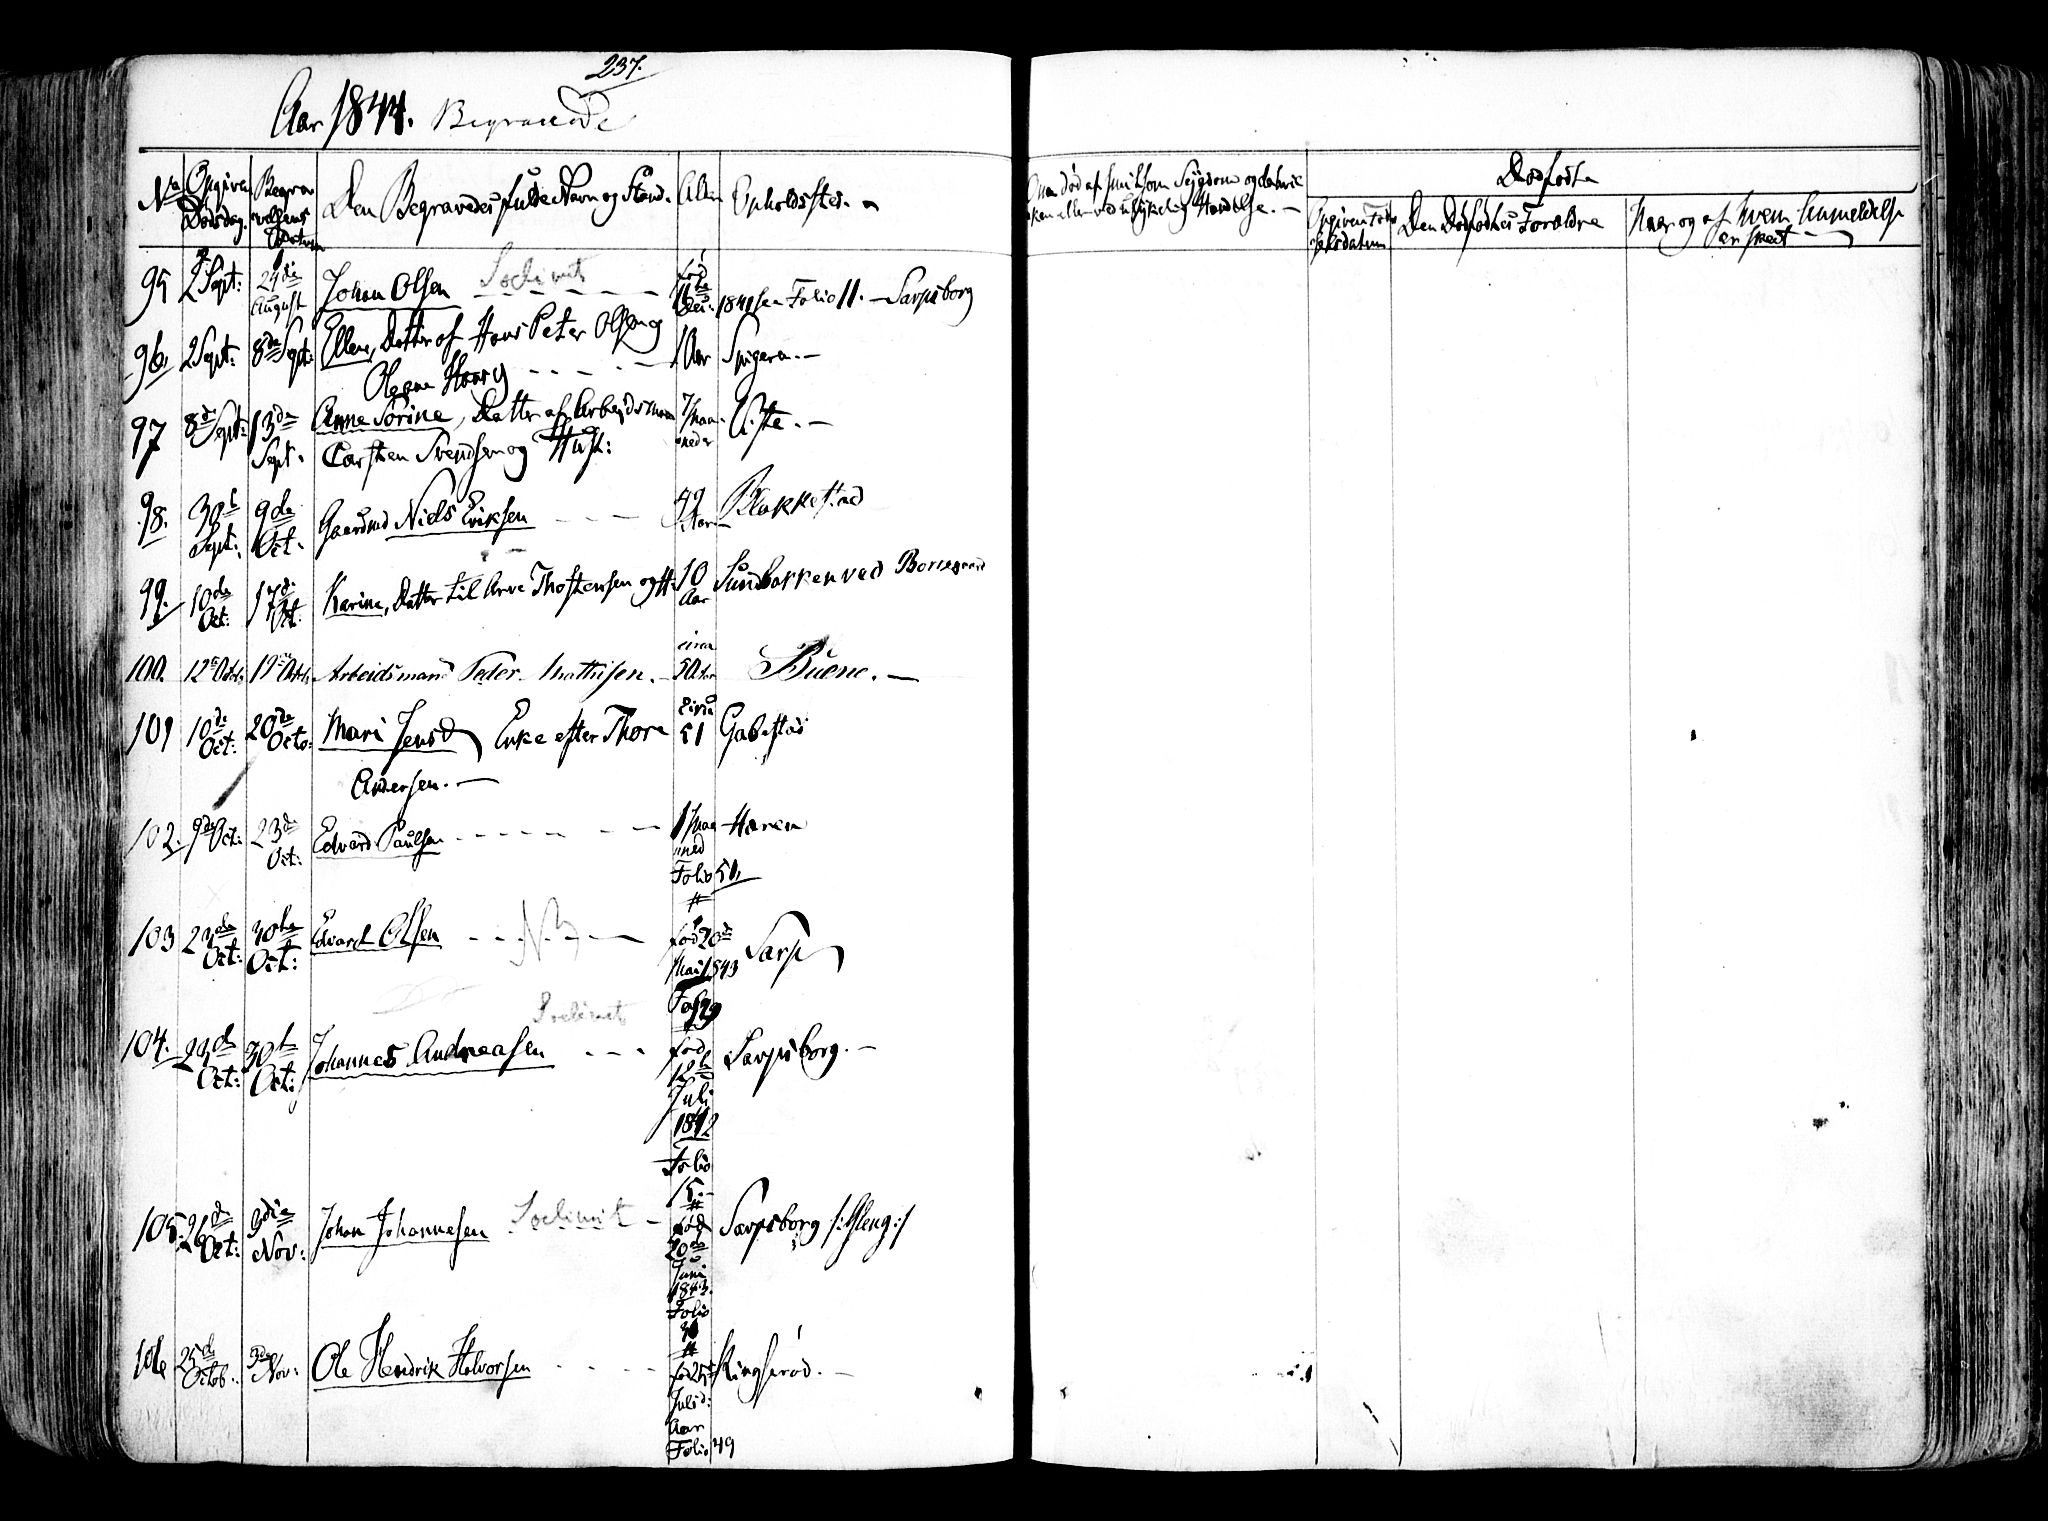 237.
Aar 1844. Begravede
No Opgiven Dødsdag. Begravelsens Datum Den Begravedes fulde Navn og Stand. Alder Opholdssted.
Om død af smitsom Sygdom og dens
eller ved ulykkelig Hændelse. Dødfødte
Opgiven Fødselsdatum Den Dødfødtes Forældre Naar og af hvem Anmeldelse er skeet
95 2 Sept: 29de August Johan Olsen født 11te Dec: 1841 see Folio 11. Sarpsborg
96. 2 Sept: 8de Sept: Ellen, Datter af Hans Peter Olsen og 1 Aar
97 8de Sept: 13de Sept. Anne Sorine, Datter af Arbeidsmand 7 Maaneder Viste.
Carsten Svendsen og Hust:
98. 30te Sept: 9de Oct. Gaardmd Niels Eriksen 49 Aar Blakkestad
99. 10de Oct: 17de Oct: Karine, Datter til Arve Thostensen og H: 10 Aar Sundbakken ved Borregaard
100. 12te Octob. 19de Octob. Arbeidsmand Peder Mathisen. circa 50 Aar Buene.
101 10de Oct: 20de Octo: Mari Jensd Enke efter Thore circa 51 Gabestad
Andersen.
102. 9de Oct: 23de Oct: Edvard Paulsen 1 Maaned Haren
Folio 51.
103 23de Oct: 30te Oct: Edvard Olsen NB født 20de Mai 1843 Sarp
Fol 29
104. 23de Oct: 30te Oct: Johannes Andreasen født 12te Juli 1842 Sarpsborg.
Folio 15.
105. 26de Oct: 3die Nov: Johan Johannesen født 20de Juni 1843. Sarpsborg
Folio
106 25de Octob. 3de Nov: Ole Hendrik Halvorsen født 25de Juli d: Aar Ringserød.
Folio 49